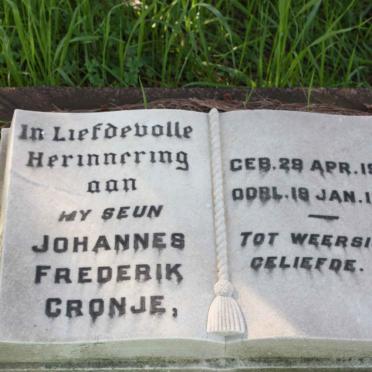 In Liefdevolle
Herinnering
aan
MY SEUN
JOHANNES
FREDERIK
CRONJE,
GEB. 29 APR.
OORL. 18 JAN.
TOT
GELIEFDE.